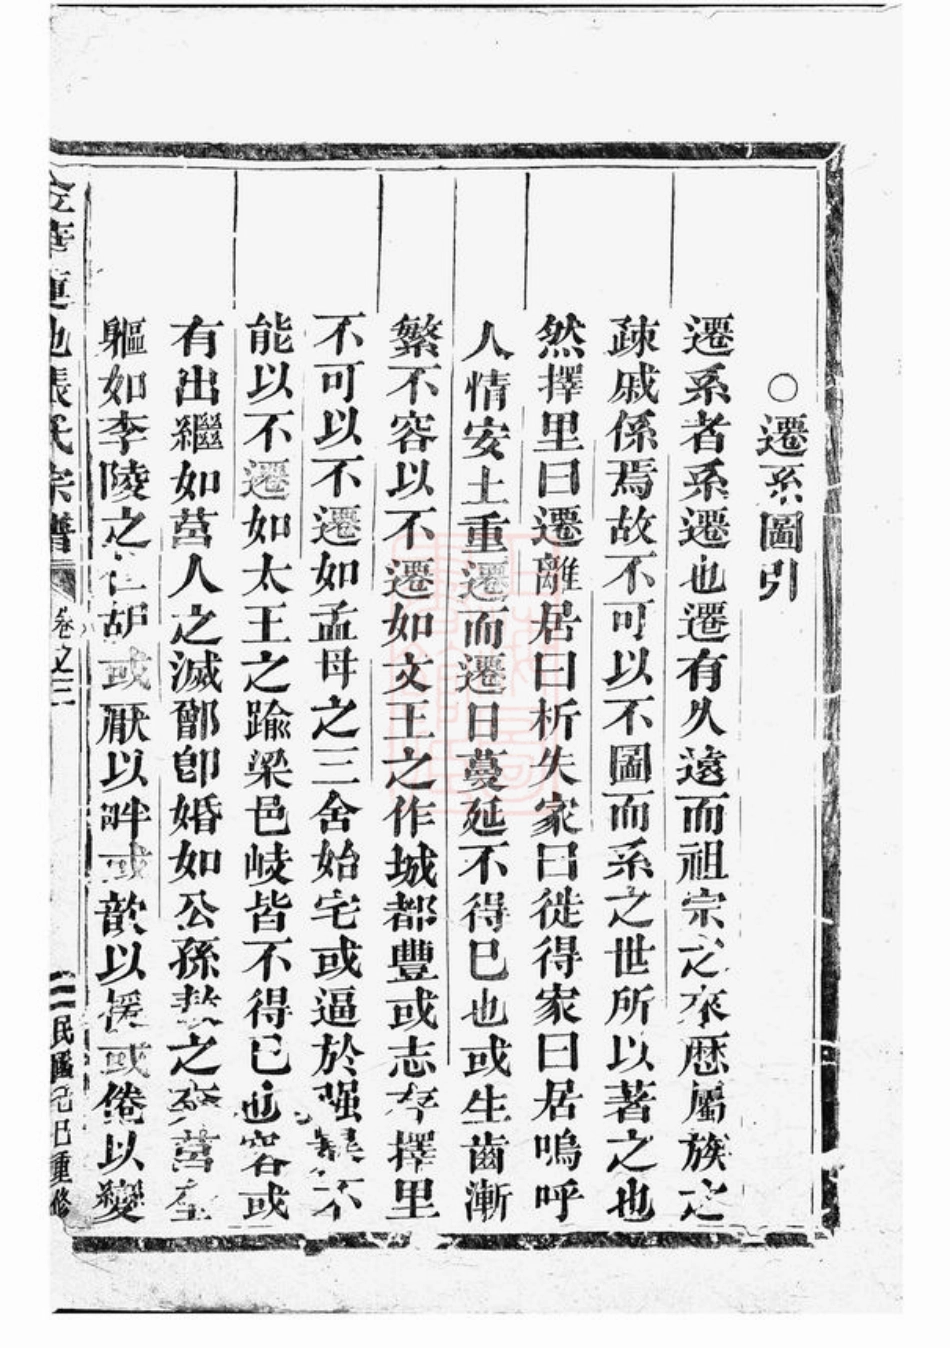 ○遷系圖引
遷系者系遷也遷有久遠而祖宗之來歷屬族之
疎戚係焉故不可以不圖而系之世所以著之也
然擇里曰遷離居曰析失家曰徙得家曰居嗚呼
人情安土重遷而遷日蔓延不得已也或生齒漸
繁不容以不遷如文王之作城都豐或志存擇里
不可以不遷如孟母之三舍始宅或逼於强暴不
能以不遷如太王之踰梁邑岐皆不得已也容或
有出繼如莒人之滅鄫卽婚如公孫敖之奔莒至
軀如李陵之亡胡或厭以畔或歆以援或倦以變
金華蓮池張氏宗譜 卷之三 二 民國己巳重修